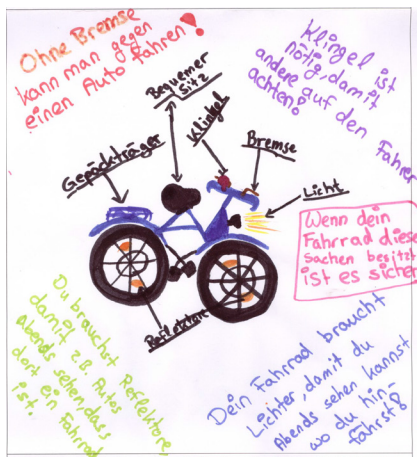 Ohne Bremse
kann man gegen
einen Auto fahren!
Klingel ist
nötig, damit
andere auf den Fahrer
achten!
Bequemer
Sitz
Klingel
Bremse
Gepäckträger
Licht
Wenn dein
Fahrrad diese
Sachen besitzt
ist es sicher
Reflektoren
Du brauchst Reflektore,
damit z.B. Autos
abends sehen, dass
dort ein Fahrrad
ist.
Dein Fahrrad braucht
Lichter, damit du
Abends sehen kannst
wo du hin-
fährst!